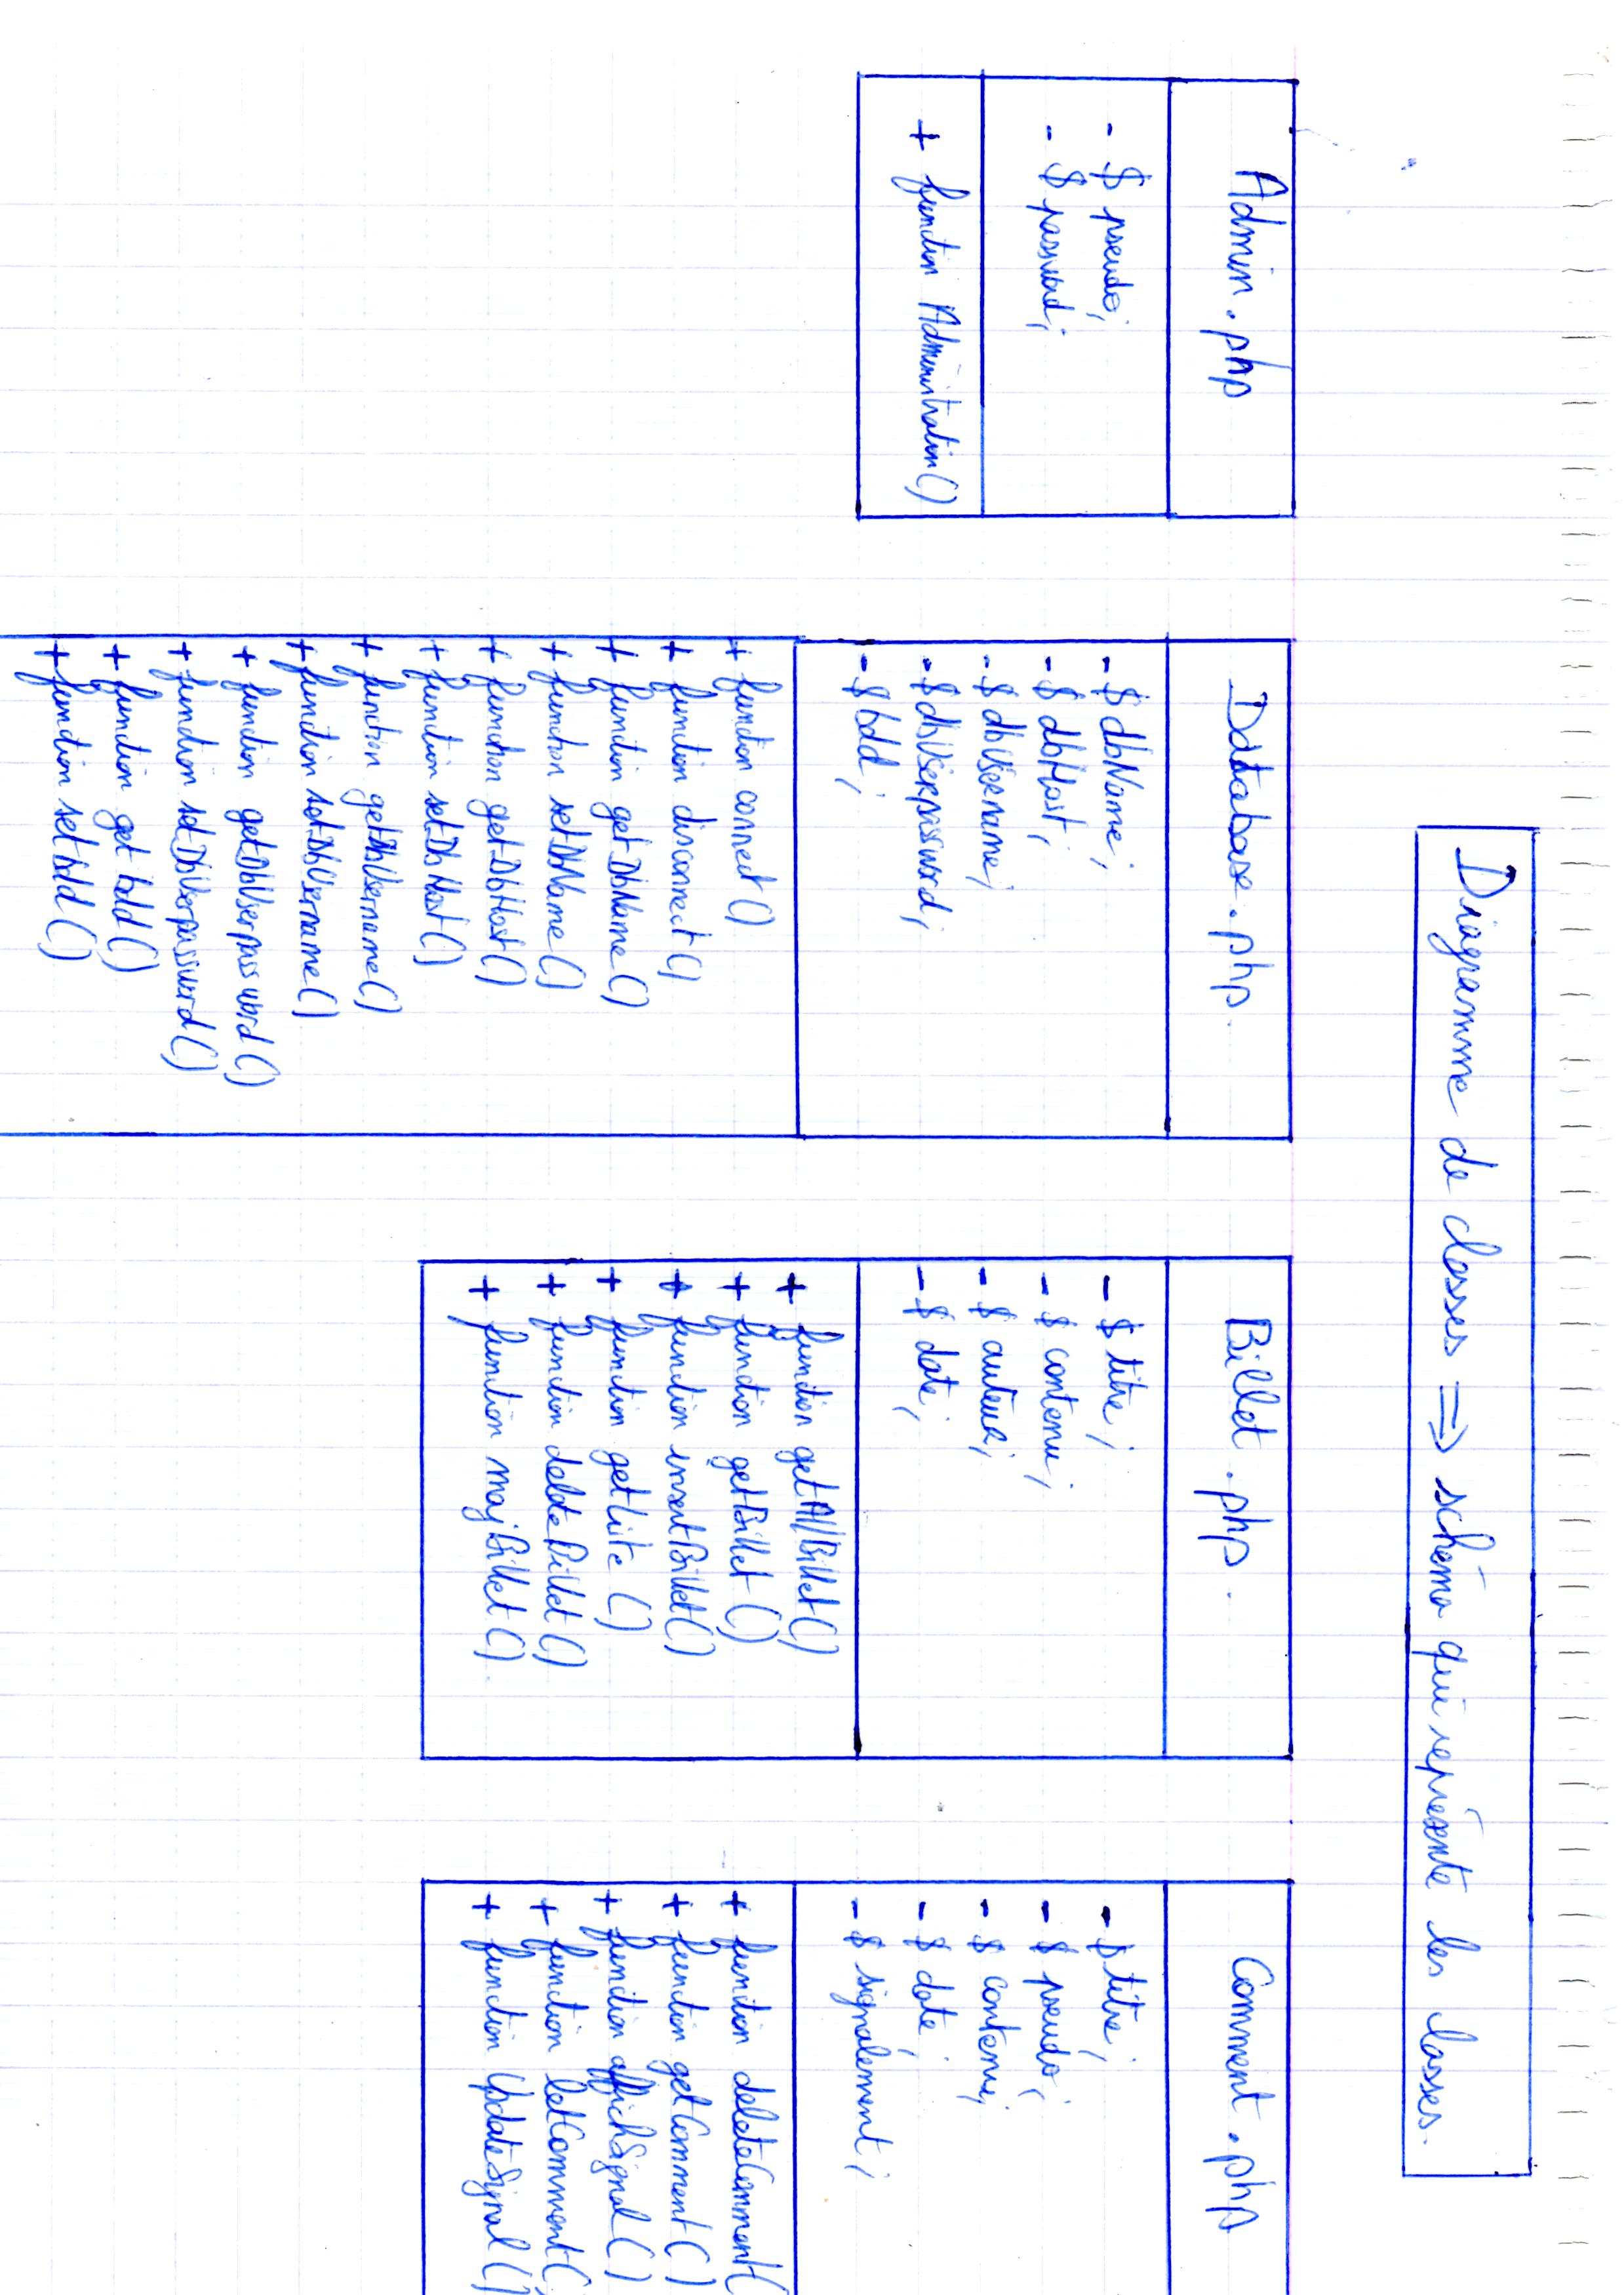 Diagramme de classes => schéma qui représente les lasses.
Admin.php
- $ pseudo;
- $ password;
+ function Administration()
Database.php.
- $ dbName;
- $ dbHost;
- $ dbUsername;
- $ dbUserpassword;
- $ bdd;
+ function connect()
+ function disconnect()
+ function getDbName()
+ function setDbName()
+ function getDbHost()
+ function setDbHost()
+ function getDbUsername()
+ function setDbUsername()
+ function getDbUserpassword()
+ function setDbUserpassword()
+ function get bdd()
+ function set bdd()
Billet.php.
- $ titre;
- $ contenu;
- $ auteur;
- $ date;
+ function getAllBillet()
+ function getBillet()
+ function insertBillet()
+ function
+ function deleteBillet()
+ function majBillet()
Comment.php
- $ titre;
- $ pseudo;
- $ contenu;
- $ date;
- $ signalement;
+ function deleteComment(
+ function getComment()
+ function affichSignal()
+ function letComment(
+ function UpdateSignal()